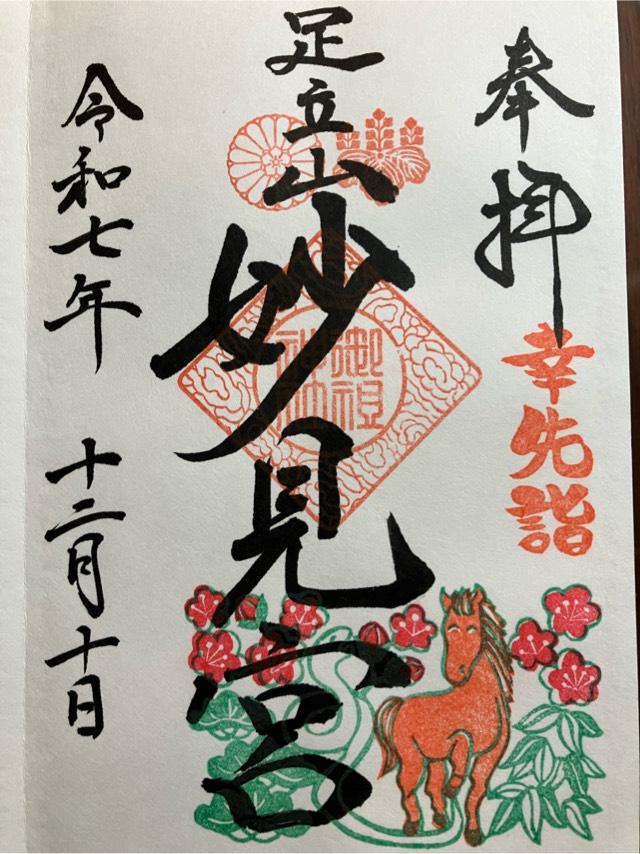 奉拝
幸先詣
足立山妙見宮
御祖神社
令和七年 十二月十日